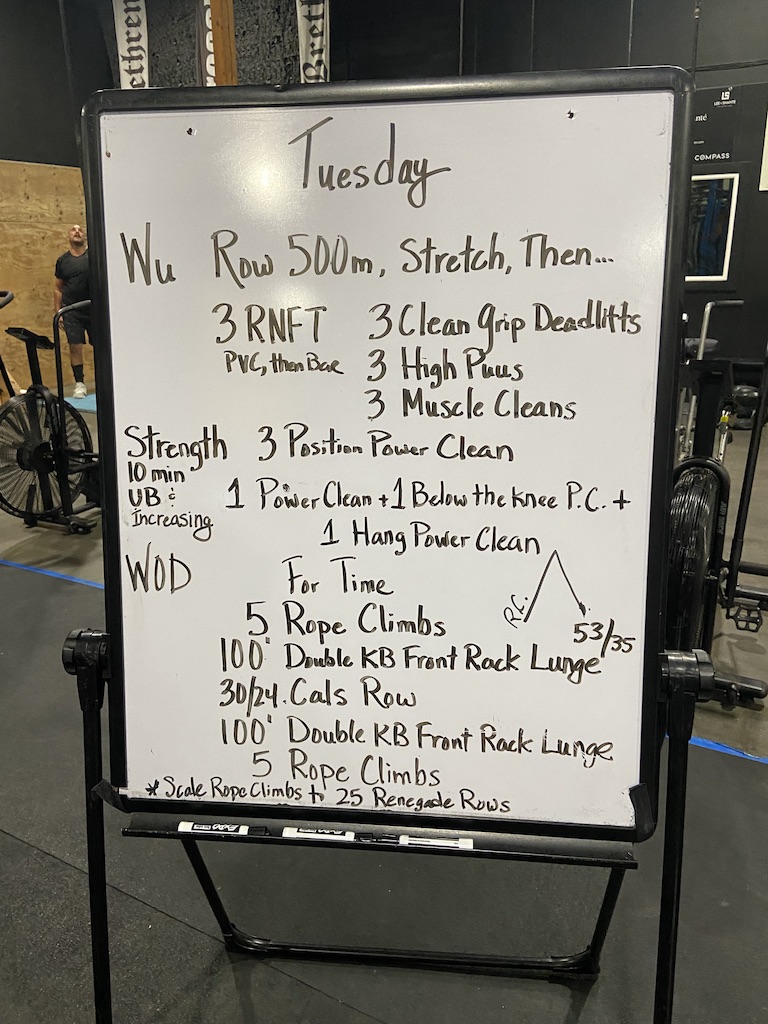 ethren
Breth
LS
LEE + SHANTÉ
nté
COMPASS
Tuesday
Wu Row 500m, Stretch, Then...
3 RNFT 3 Clean Grip Deadlifts
PVC, then Bar 3 High Pulls
3 Muscle Cleans
Strength 3 Position Power Clean
10 min
UB & 1 Power Clean + 1 Below the knee P.C. +
Increasing
1 Hang Power Clean
WOD For Time
R.C.
5 Rope Climbs
53/35
100' Double KB Front Rack Lunge
30/24 Cals Row
100' Double KB Front Rack Lunge
5 Rope Climbs
* Scale Rope Climbs to 25 Renegade Rows
EXPO
EXPO